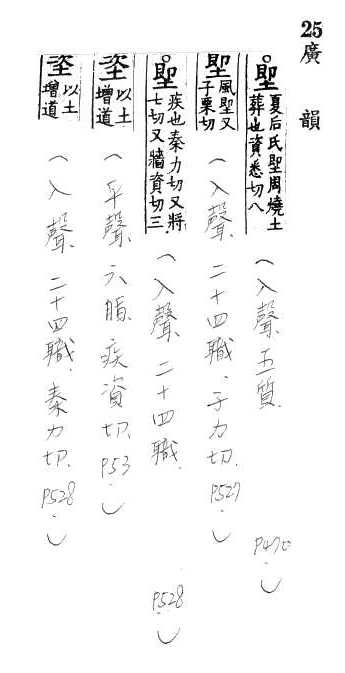 25 廣韻
堲夏后氏堲周燒土葬也資悉切八（入聲.五質.P470.）
堲風堲又子栗切（入聲.二十四職.子力切.P527.）
堲疾也秦力切又將七切又牆資切三（入聲.二十四職.P528.）
垐以土增道（平聲.六脂.疾資切.P53.）
垐以土增道（入聲.二十四職.秦力切.P528.）